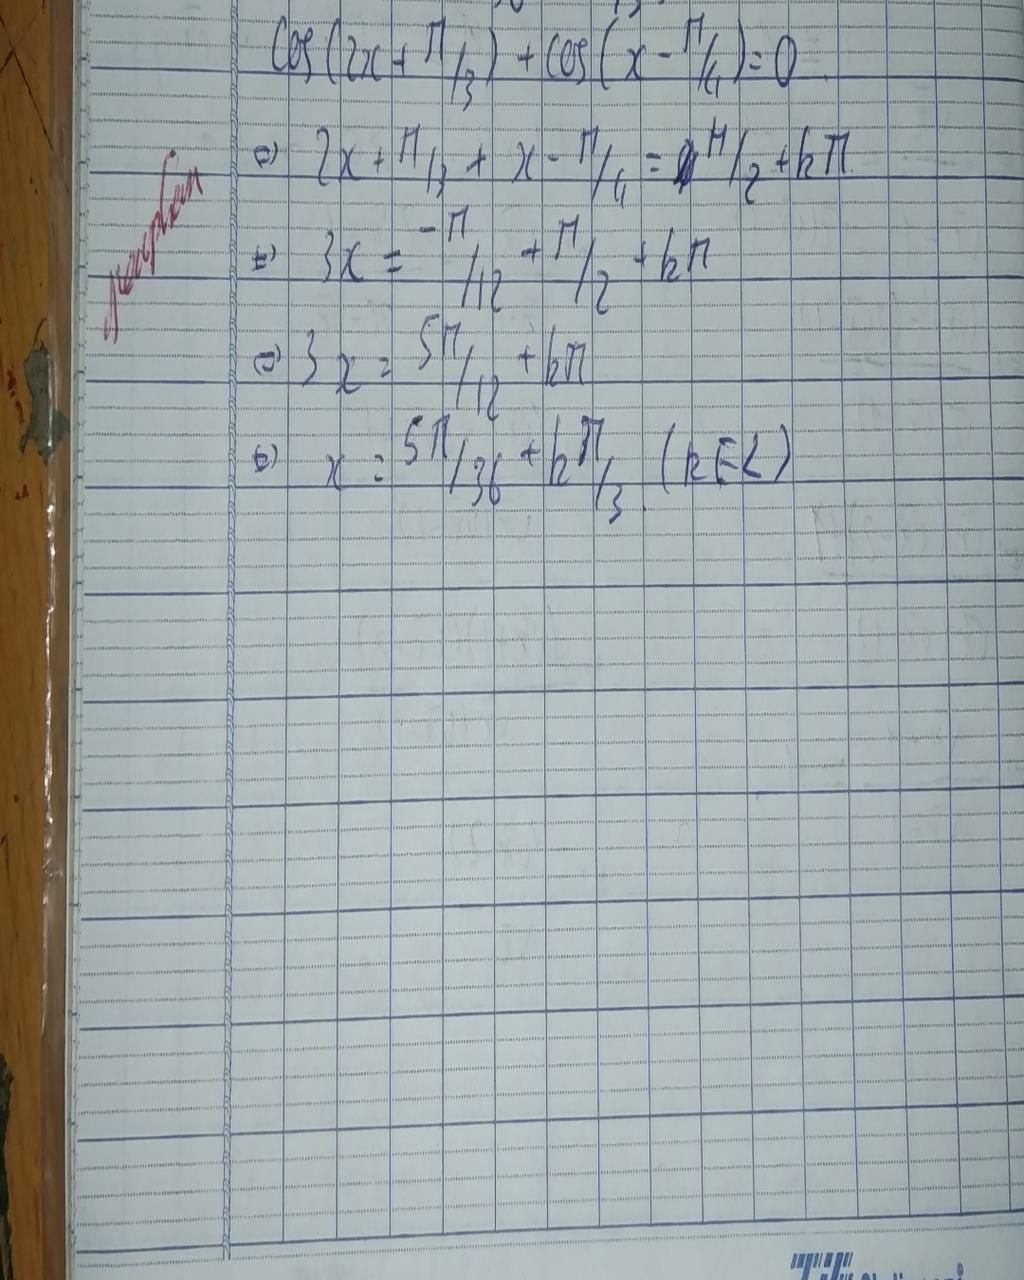 cos(2x + π/3) + cos(x - π/4) = 0
⇔ 2x + π/3 + x - π/4 = π/2 + kπ
⇔ 3x = -π/12 + π/2 + kπ
⇔ 3x = 5π/12 + kπ
⇔ x = 5π/36 + kπ/3 (k∈Z)